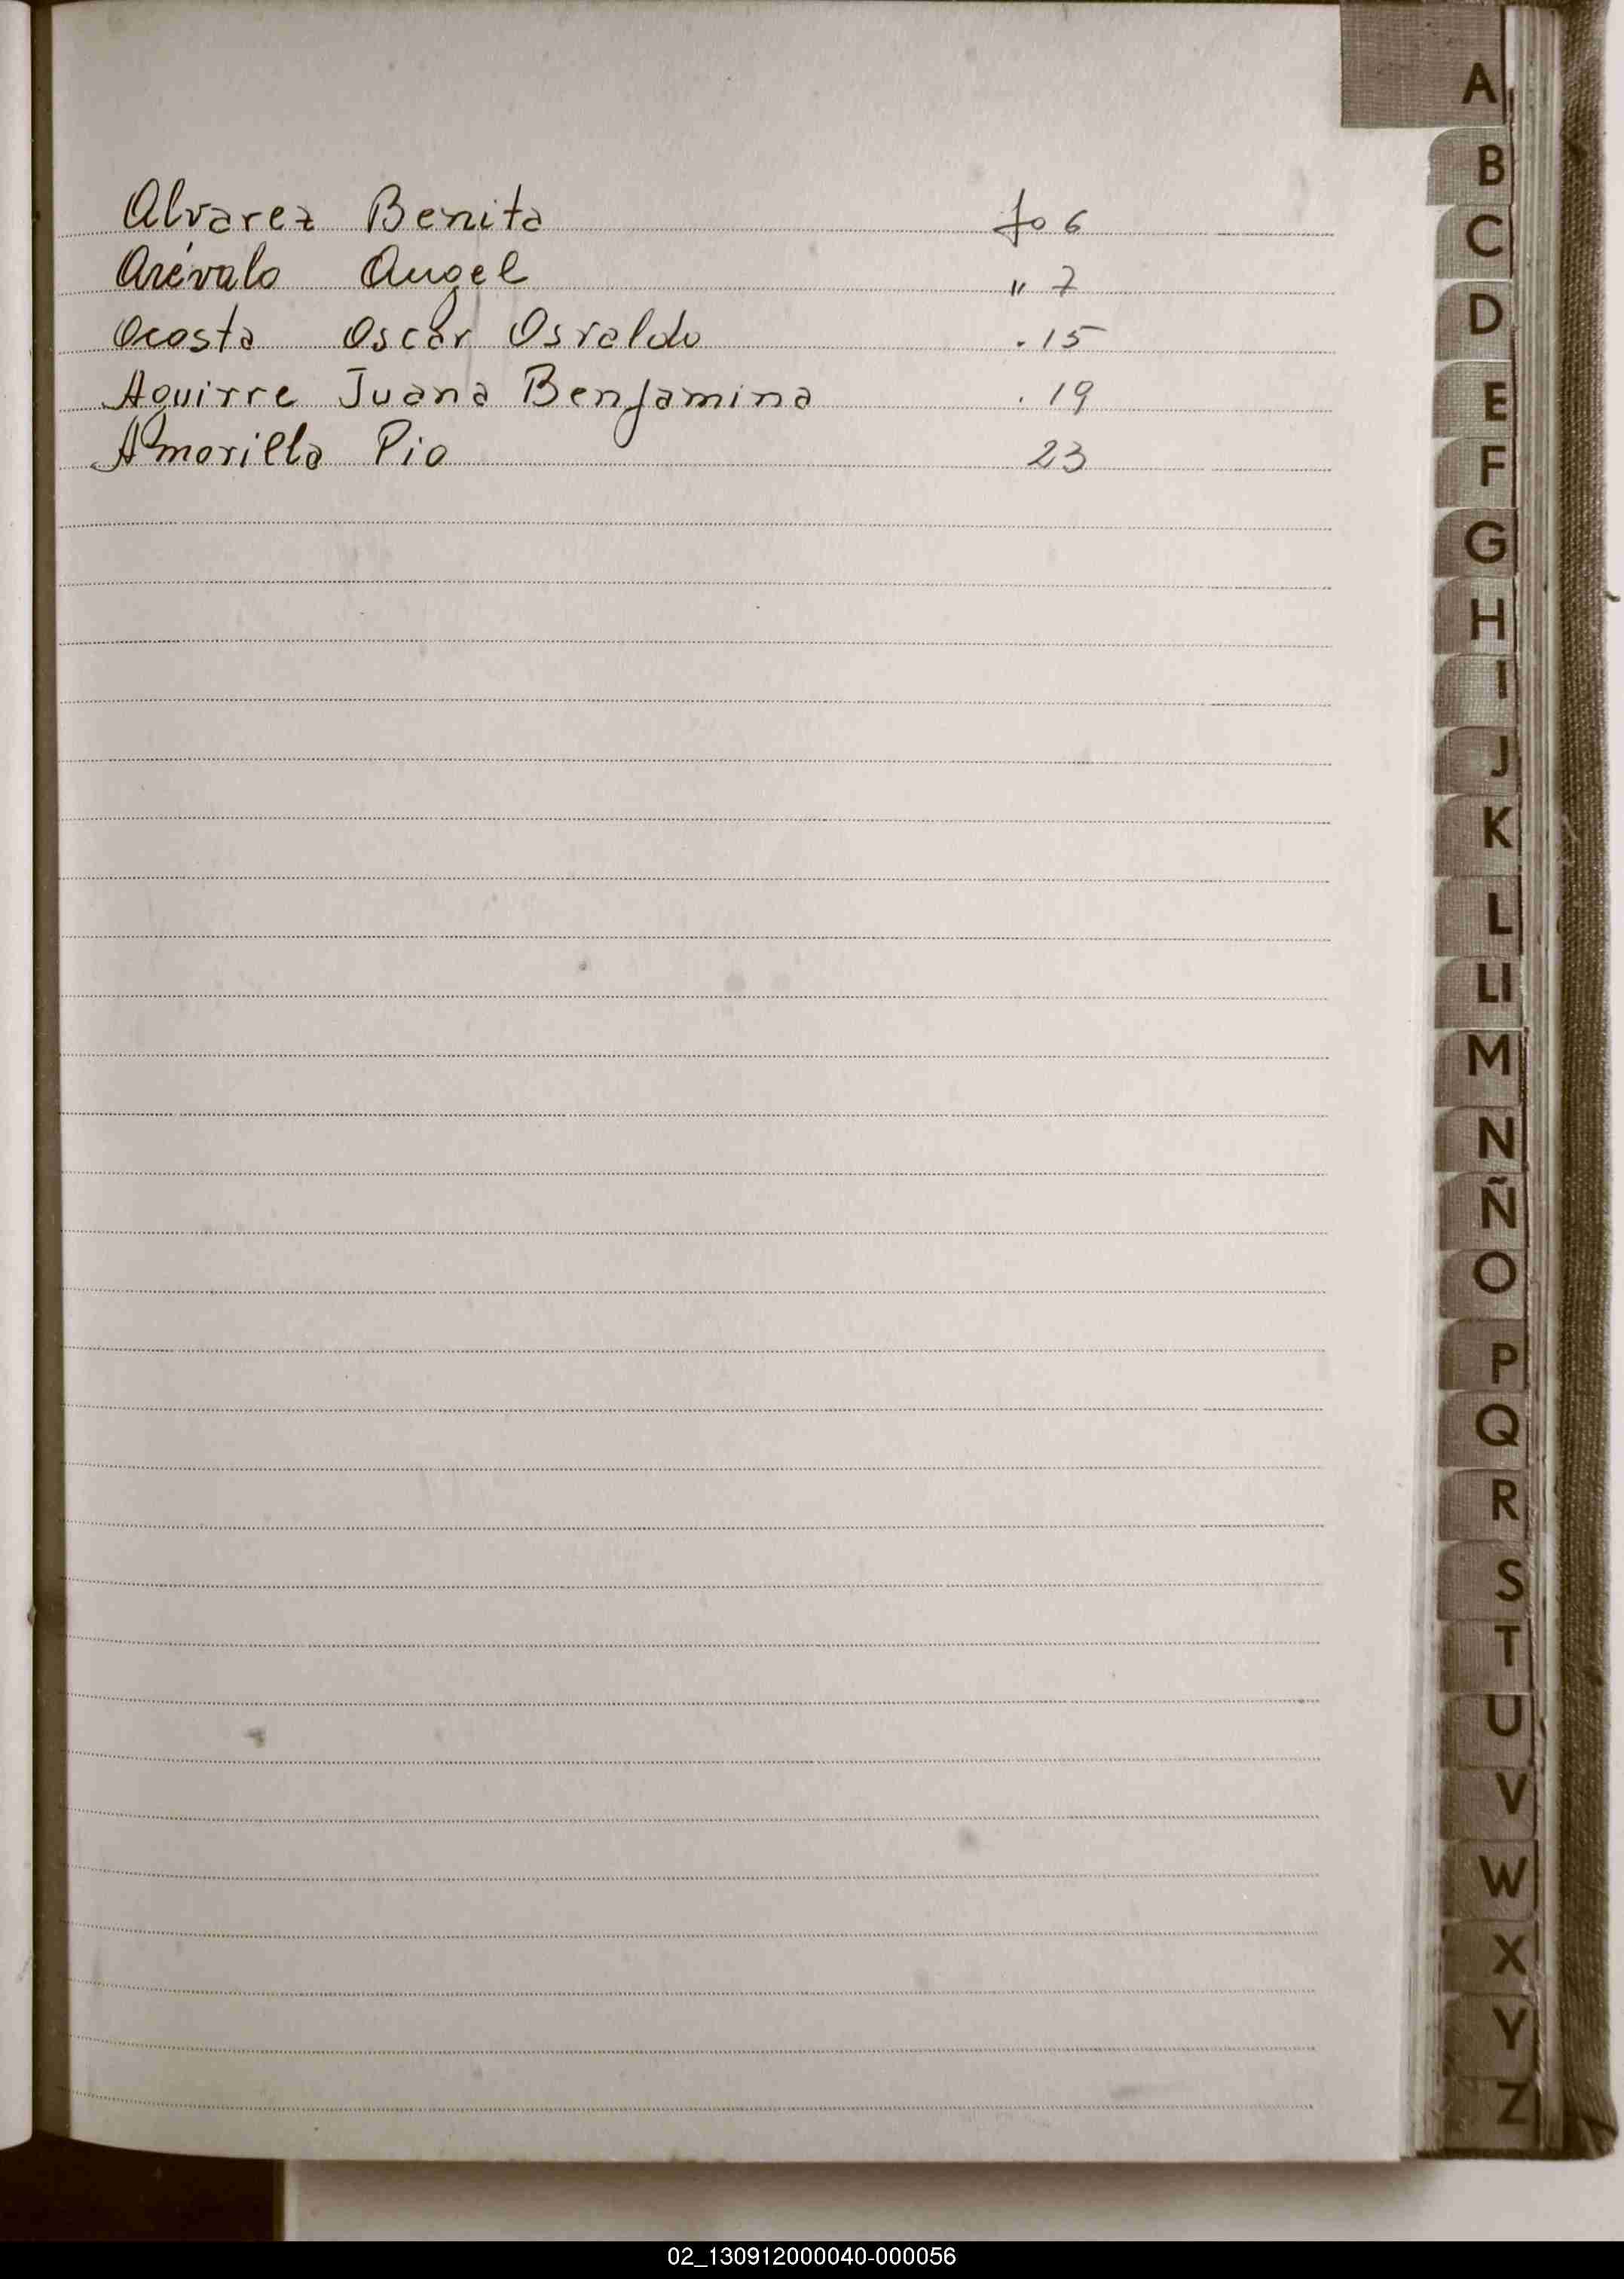 A
B
C
D
E
F
G
H
I
J
K
L
LL
M
N
Ñ
O
P
Q
R
S
T
U
V
W
X
Y
Z
Alvarez Benita fo 6
Arévalo Angel " 7
Acosta Oscar Osvaldo . 15
Aguirre Juana Benjamina . 19
Amorilla Pio 23
02_130912000040-000056